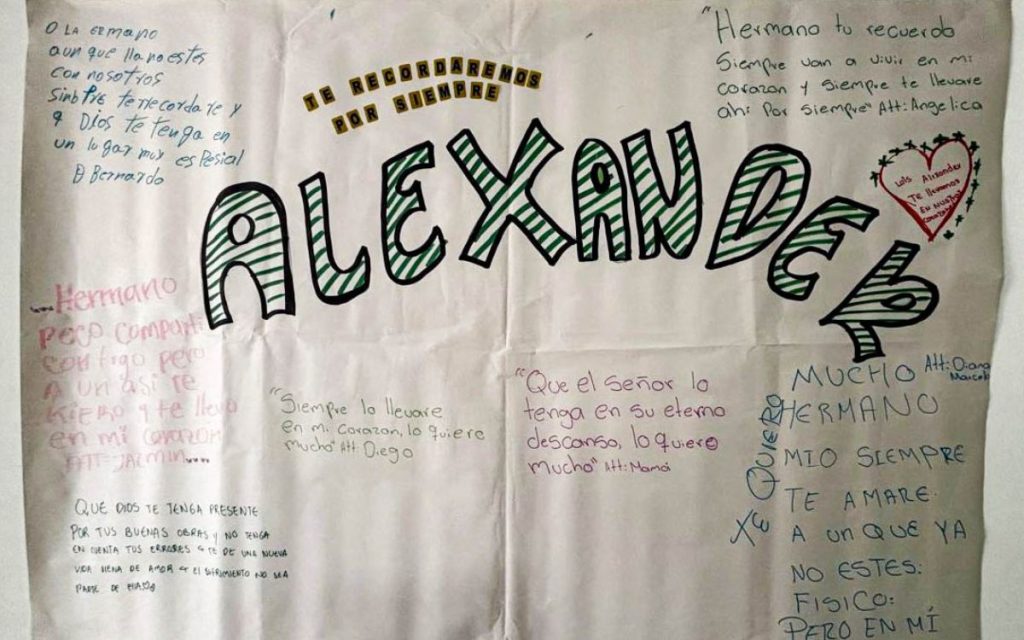 O LA ERMANO
aun que lla no estes
con nosotros
Sinbpre te rrecordare y
q Dios te tenga en
un lugar muy espesial
Bernardo
TE RECORDAREMOS
POR SIEMPRE
"Hermano tu recuerdo
Siempre van a vivir en mi
corazon y siempre te llevare
ahi Por Siempre" Att: Angelica
ALEXANDER
Luis Alexander
Te llevamos
EN NUESTRO
...Hermano
POCO comparti
contigo pero
A un asi te
KIERO y te llevo
en mi corazon
ATT-JAZMIN...
"Siempre lo llevare
en mi corazon, lo quiero
mucho" Att Diego
"Que el Señor lo
tenga en su eterno
descanso, lo quiero
mucho" Att: Mamá
QUE DIOS TE TENGA PRESENTE
POR TUS BUENAS OBRAS y NO TENGA
EN CUENTA TUS ERRORES q TE DE UNA NUEVA
VIDA LLENA DE AMOR q EL SUFRIMIENTO NO SEA
PARTE DE
TE QUIERO
MUCHO Att: Diana
Marcela
HERMANO
MIO SIEMPRE
TE AMARE.
A UN QUE YA
NO ESTES:
FISICO:
PERO EN MÍ